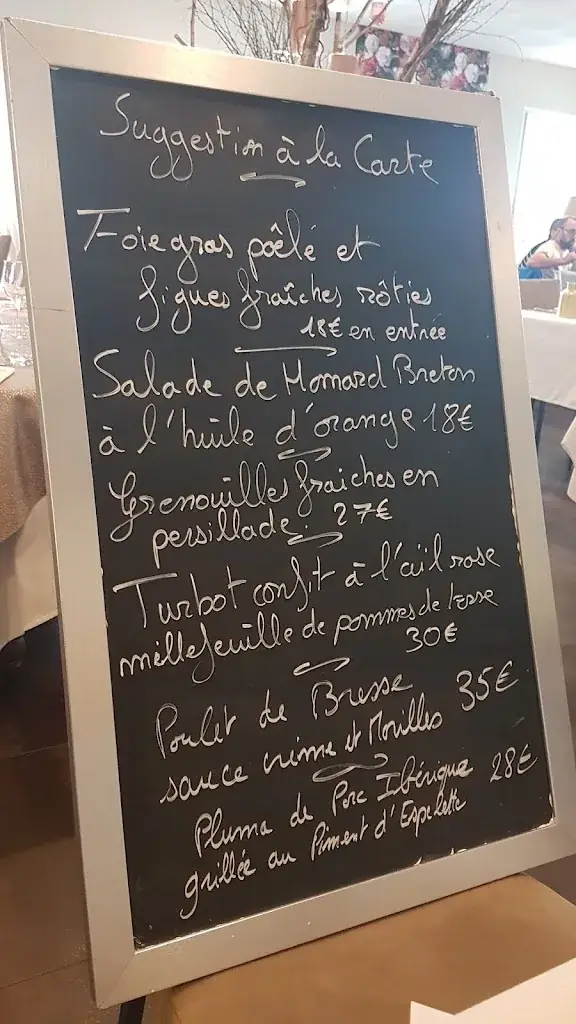 Suggestion à la Carte
Foie gras pôêlé et
figues fraîches rôties
18€ en entrée
Salade de Homard Breton
à l'huile d'orange 18€
Grenouilles fraiches en
persillade. 27€
Turbot confit à l'ail rose
millefeuille de pommes de terre
30€
Poulet de Bresse 35€
sauce crème et Morilles
Pluma de Porc Ibérique 28€
grillée au Piment d'Espelette